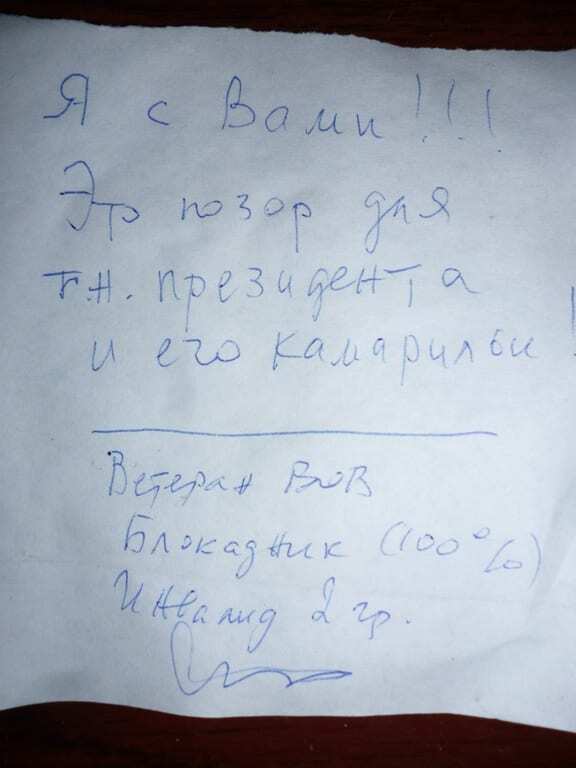 Я с Вами!!!
Это позор для
т.н. президента
и его камарильи!
Ветеран ВОВ
Блокадник (100%)
Инвалид 2 гр.